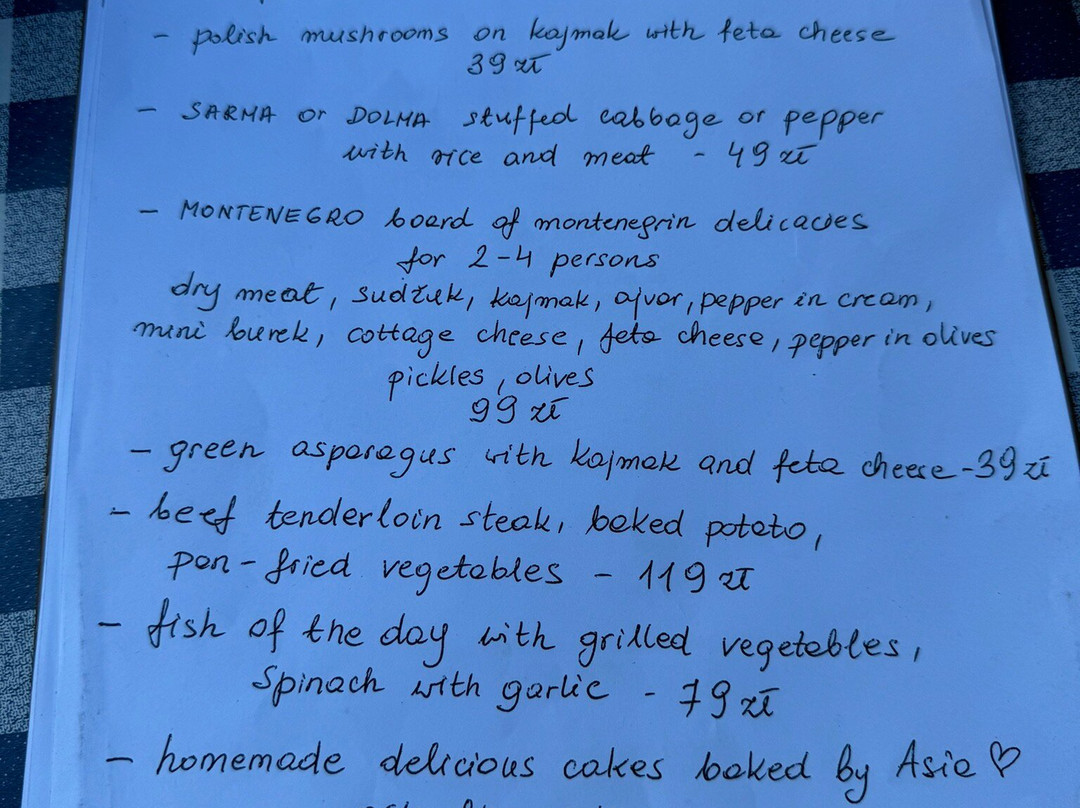 - polish mushrooms on kajmak with feta cheese
39 zł
- SARMA or DOLMA stuffed cabbage or pepper
with rice and meat - 49 zł
- MONTENEGRO board of montenegrin delicacies
for 2-4 persons
dry meat, sudžuk, kajmak, ajvar, pepper in cream,
mini burek, cottage cheese, feta cheese, pepper in olives
pickles, olives
99 zł
- green asparagus with kajmak and feta cheese - 39 zł
- beef tenderloin steak, baked potato,
pan-fried vegetables - 119 zł
- fish of the day with grilled vegetables,
Spinach with garlic - 79 zł
- homemade delicious cakes baked by Asia ♡